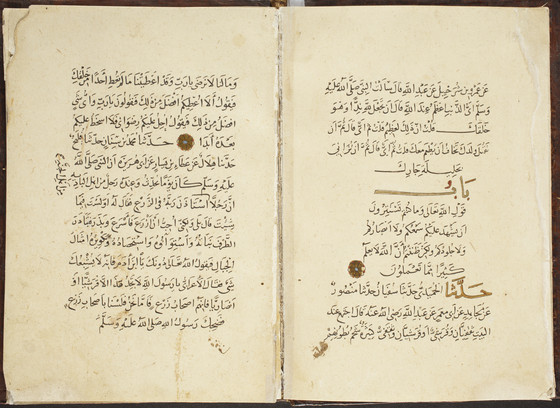 عن عمرو بن شرحبيل عن عبد الله قال سالت النبي صلى الله عليه
وسلم اي الذنب اعظم عند الله قال ان تجعل لله ندا وهو
خلقك قلت ان ذلك لعظيم قلت ثم اي قال ثم ان
تقتل ولدك تخاف ان يطعم معك قلت ثم اي قال ثم ان تزاني
بحليلة جارك
باب
قول الله تعالى وما كنتم تستترون
ان يشهد عليكم سمعكم ولا ابصاركم
ولا جلودكم ولكن ظننتم ان الله لا يعلم
كثيرا مما تعملون
حدثنا الحميدي حدثنا سفيان حدثنا منصور
عن مجاهد عن ابي معمر عن عبد الله رضي الله عنه قال اجتمع عند
البيت ثقفيان وقرشي او قرشيان وثقفي كثيرة شحم بطونهم
وما لنا لا نرضى يا رب وقد اعطيتنا ما لم تعط احدا من خلقك
فيقول الا اعطيكم افضل من ذلك فيقولون يا رب واي شي
افضل من ذلك فيقول احل عليكم رضواني فلا اسخط عليكم
بعده ابدا حدثنا محمد بن سنان حدثنا فليح
حدثنا هلال عن عطاء بن يسار عن ابي هريرة ان النبي صلى الله
عليه وسلم كان يوما يحدث وعنده رجل من اهل البادية
ان رجلا استاذن ربه في الزرع فقال له اولست فيما
شئت قال بلى ولكني احب ان ازرع فاسرع وبذر فبادر
الطرف نباته واستواؤه واستحصاده وتكويره امثال
الجبال فيقول الله تعالى دونك يا ابن ادم فانه لا يشبعك
شي فقال الاعرابي يا رسول الله لا تجد هذا الا قرشيا او
انصاريا فانهم اصحاب زرع فاما نحن فلسنا باصحاب زرع
فضحك رسول الله صلى الله عليه وسلم